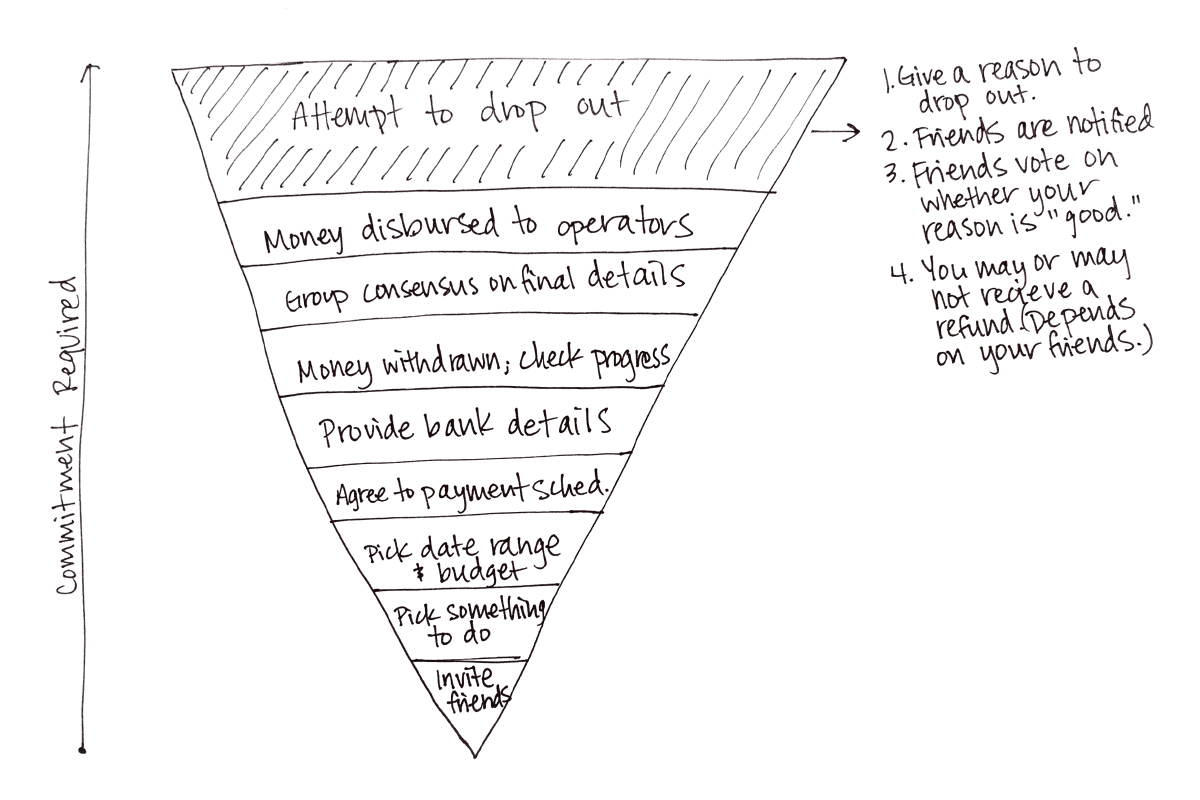 Commitment Required
Attempt to drop out
Money disbursed to operators
Group consensus on final details
Money withdrawn; check progress
Provide bank details
Agree to payment sched.
Pick date range
& budget
Pick something
to do
Invite
friends
1. Give a reason to
drop out.
2. Friends are notified
3. Friends vote on
whether your
reason is "good."
4. You may or may
not recieve a
refund. (Depends
on your friends.)